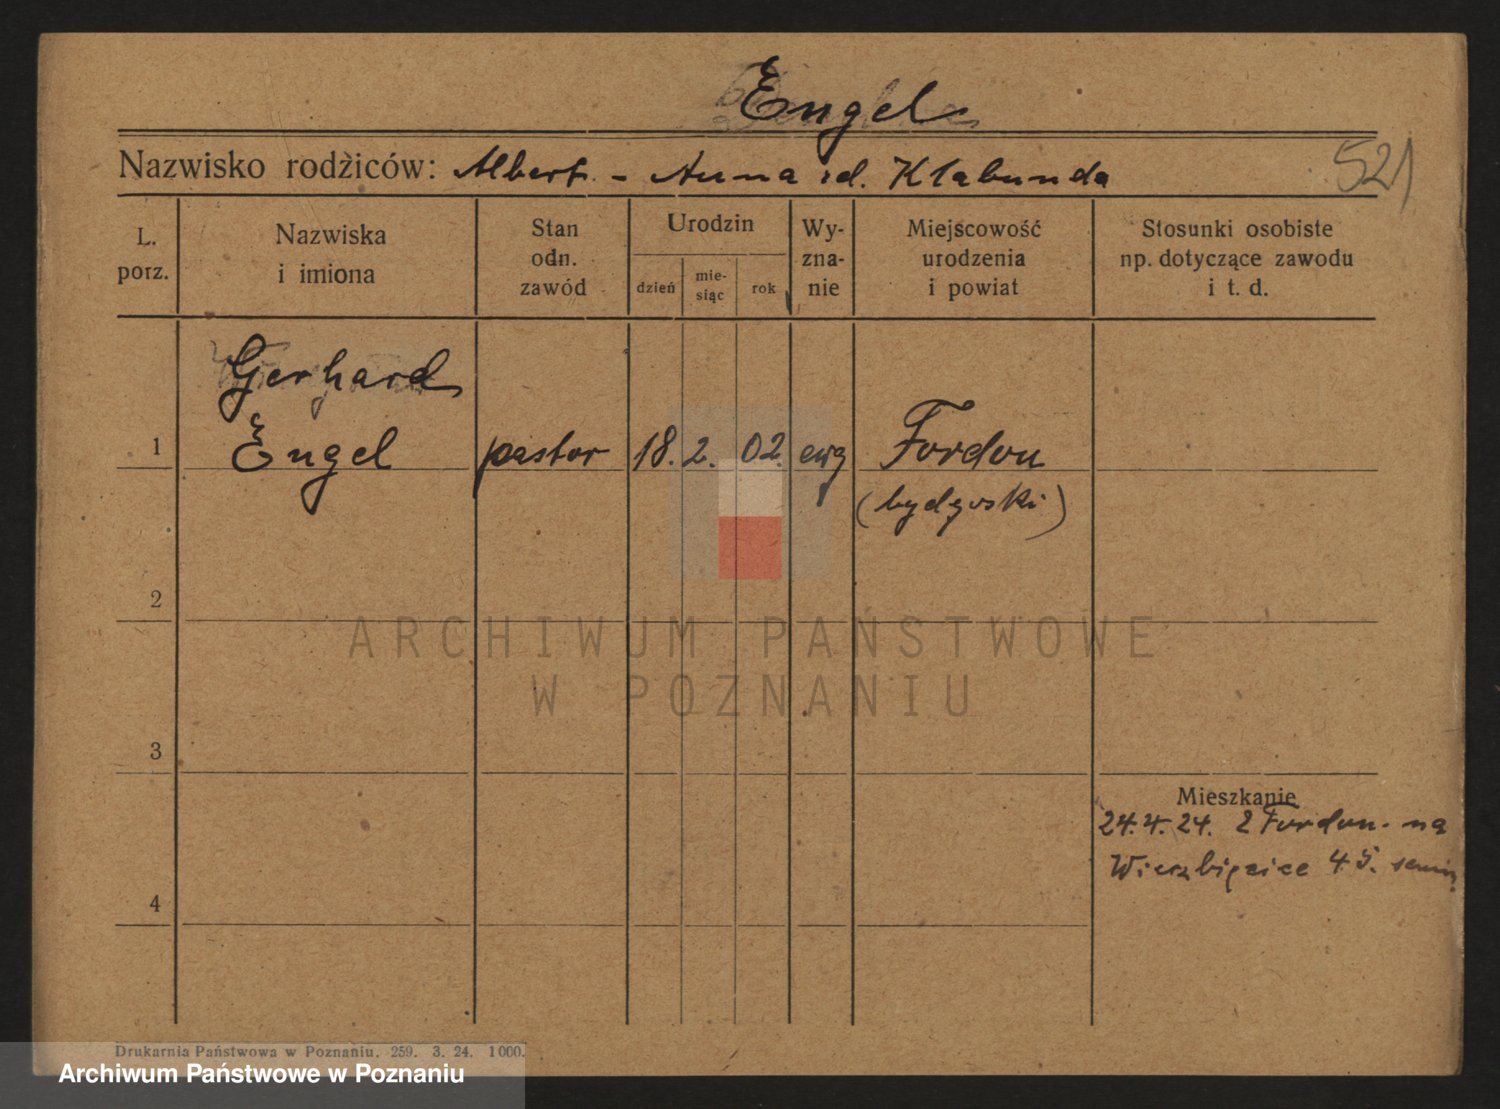 Engel
Nazwisko rodziców: Albert - Anna rd. Klabunda
521
L. porz.
Nazwiska i imiona
Stan odn. zawód
Urodzin
dzień
mie-siąc
rok
Wy-zna-nie
Miejscowość urodzenia i powiat
Stosunki osobiste np. dotyczące zawodu i t. d.
Gerhard
1 Engel pastor 18. 2. 02. ewg Fordon
(bydgoski)
2
3
4
ARCHIWUM PAŃSTWOWE
W POZNANIU
Mieszkanie
24.4.24. z Fordon - na
Wierzbięcice 45.
Drukarnia Państwowa w Poznaniu. 259. 3. 24. 1000.
Archiwum Państwowe w Poznaniu